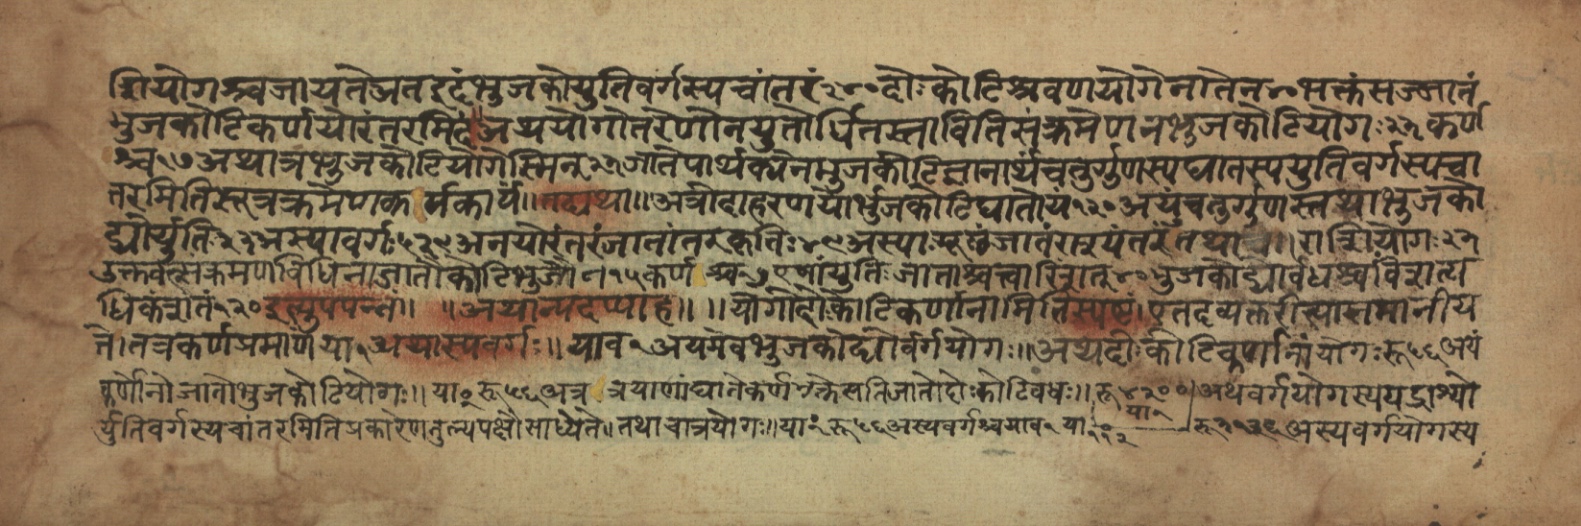 त्रियोगश्च जायते अत इदं भुजकोयुतिवर्गस्य चांतरं २८० दोः कोटिश्रवणयोगेनातेन ४० भक्तं सज्जातं
भुजकोटिकर्णयोरंतरमिदं अथ योगोंतरेणोनयुतोर्धितस्ताविति संक्रमेण न भुजकोटियोगः २३ कर्ण
श्च १७ अथात्र भुजकोटियोगेस्मिन् २३ जाते पार्थक्येन भुजकोटिज्ञानार्थं चतुर्गुणस्य घातस्य युतिवर्गस्य चा
तरमिति सूत्रक्रमेण कर्मकार्यं॥ तद्यथा॥ अत्रोदाहरणयोर्भुजकोटिघातोयं १२० अयं चतुर्गुणस्तथा भुजको
द्योर्युतिः २३ अस्या वर्गः ५२९ अनयोरंतरं जातांतरकृतिः ४९ अस्याः मूलं जातं तथा योगः २३
उक्तवत्संक्रमणविधिना जातौ कोटिभुजौ ८ १५ कर्णश्च १७ एषां युतिः जाता श्चत्वारिंशत् ४० भुजकोद्योर्वधश्च विंशत्य
धिकशतं १२० इत्युपपन्नं॥ ॥ अथान्यदप्याह॥ ॥ योगो दोः कोटिकर्णानामिति स्पष्टं। एतदव्यक्तरीत्यासमानीय
ते। तत्र कर्णप्रमाणं या १ अथास्य वर्गः॥ याव १ अयमेव भुजकोद्योर्वर्गयोगः॥ अथ दोःकोटिकर्णानां योगः रू ५६ अयं
कर्णोनो जातो भुजकोटियोगः॥ या १ रू ५६ अत्र त्रयाणां घाते कर्णभक्ते सति जातो दोः कोटिवधः॥ रू ४२०० अथ वर्गयोगस्य यद्राश्यो
या १
र्युतिवर्गस्य चांतरमिति प्रकारेण तुल्यपक्षौ साध्येते॥ तथा चात्र योगः॥ या १ रू ५६ अस्य वर्गश्च याव १ या ११२ रू ३१३६ अस्य वर्गयोगस्य